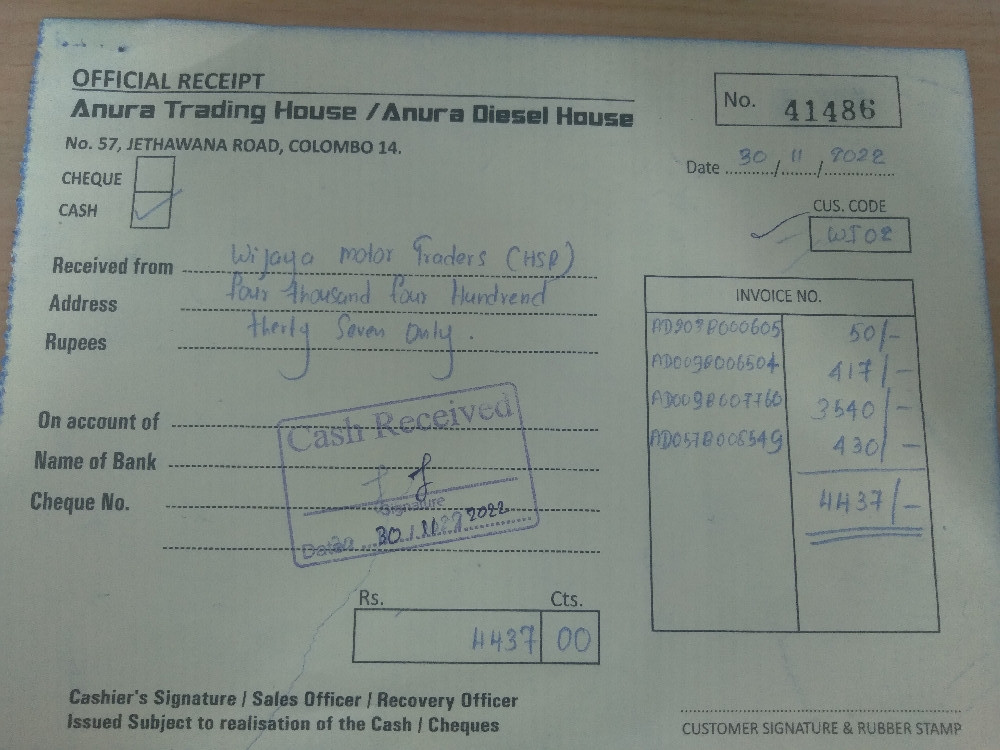 OFFICIAL RECEIPT
Anura Trading House / Anura Diesel House
No. 57, JETHAWANA ROAD, COLOMBO 14.
No. 41486
Date 30/11/2022
CHEQUE
CASH
CUS. CODE
WJ02
Received from Wijaya motor Traders (HSP)
Address four thousand four Hundrend
Rupees therty Seven Only.
INVOICE NO.
50/-
AD009B006504 417/-
AD009B007760 3540/-
AD057B006549 430/-
4437/-
On account of
Name of Bank
Cheque No.
Cash Received
Signature
30/11/2022
Rs. Cts.
4437 00
Cashier's Signature / Sales Officer / Recovery Officer
Issued Subject to realisation of the Cash / Cheques
CUSTOMER SIGNATURE & RUBBER STAMP